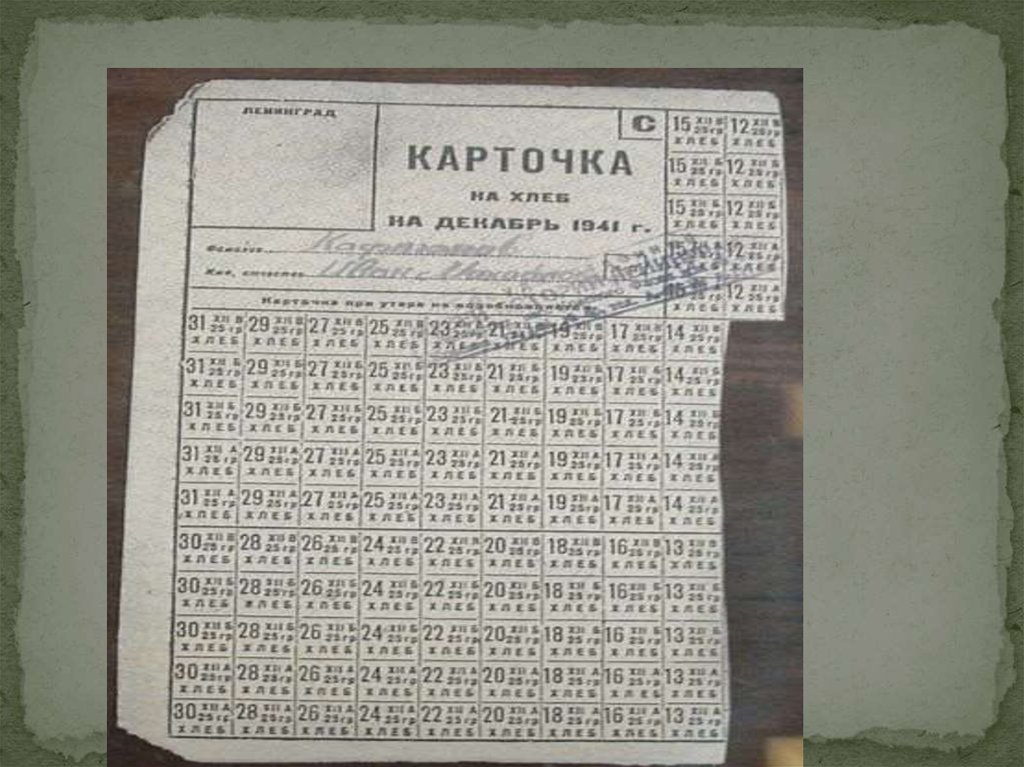 ЛЕНИНГРАД
С
КАРТОЧКА
НА ХЛЕБ
НА ДЕКАБРЬ 1941 г.
Фамилия
Имя, отчество Иван
Карточка при утере не возобновляется
15 XII В 25 гр 12 XII В 25 гр
ХЛЕБ ХЛЕБ
15 XII Б 25 гр 12 XII Б 25 гр
ХЛЕБ ХЛЕБ
15 XII Б 25 гр 12 XII Б 25 гр
ХЛЕБ ХЛЕБ
15 XII А 25 гр 12 XII А 25 гр
ХЛЕБ
15 25 гр 12 XII А 25 гр
ХЛЕБ ХЛЕБ
31 XII В 25 гр 29 XII В 25 гр 27 XII В 25 гр 25 XII В 25 гр 23 XII В 25 гр 21 XII В 25 гр 19 XII В 25 гр 17 XII В 25 гр 14 XII В 25 гр
ХЛЕБ ХЛЕБ ХЛЕБ ХЛЕБ ХЛЕБ ХЛЕБ ХЛЕБ ХЛЕБ ХЛЕБ
31 XII Б 25 гр 29 XII Б 25 гр 27 XII Б 25 гр 25 XII Б 25 гр 23 XII Б 25 гр 21 XII Б 25 гр 19 XII Б 25 гр 17 XII Б 25 гр 14 XII Б 25 гр
ХЛЕБ ХЛЕБ ХЛЕБ ХЛЕБ ХЛЕБ ХЛЕБ ХЛЕБ ХЛЕБ ХЛЕБ
31 XII Б 25 гр 29 XII Б 25 гр 27 XII Б 25 гр 25 XII Б 25 гр 23 XII Б 25 гр 21 XII Б 25 гр 19 XII Б 25 гр 17 XII Б 25 гр 14 XII Б 25 гр
ХЛЕБ ХЛЕБ ХЛЕБ ХЛЕБ ХЛЕБ ХЛЕБ ХЛЕБ ХЛЕБ ХЛЕБ
31 XII А 25 гр 29 XII А 25 гр 27 XII А 25 гр 25 XII А 25 гр 23 XII А 25 гр 21 XII А 25 гр 19 XII А 25 гр 17 XII А 25 гр 14 XII А 25 гр
ХЛЕБ ХЛЕБ ХЛЕБ ХЛЕБ ХЛЕБ ХЛЕБ ХЛЕБ ХЛЕБ ХЛЕБ
31 XII А 25 гр 29 XII А 25 гр 27 XII А 25 гр 25 XII А 25 гр 23 XII А 25 гр 21 XII А 25 гр 19 XII А 25 гр 17 XII А 25 гр 14 XII А 25 гр
ХЛЕБ ХЛЕБ ХЛЕБ ХЛЕБ ХЛЕБ ХЛЕБ ХЛЕБ ХЛЕБ ХЛЕБ
30 XII В 25 гр 28 XII В 25 гр 26 XII В 25 гр 24 XII В 25 гр 22 XII В 25 гр 20 XII В 25 гр 18 XII В 25 гр 16 XII В 25 гр 13 XII В 25 гр
ХЛЕБ ХЛЕБ ХЛЕБ ХЛЕБ ХЛЕБ ХЛЕБ ХЛЕБ ХЛЕБ ХЛЕБ
30 XII Б 25 гр 28 XII Б 25 гр 26 XII Б 25 гр 24 XII Б 25 гр 22 XII Б 25 гр 20 XII Б 25 гр 18 XII Б 25 гр 16 XII Б 25 гр 13 XII Б 25 гр
ХЛЕБ ХЛЕБ ХЛЕБ ХЛЕБ ХЛЕБ ХЛЕБ ХЛЕБ ХЛЕБ ХЛЕБ
30 XII Б 25 гр 28 XII Б 25 гр 26 XII Б 25 гр 24 XII Б 25 гр 22 XII Б 25 гр 20 XII Б 25 гр 18 XII Б 25 гр 16 XII Б 25 гр 13 XII Б 25 гр
ХЛЕБ ХЛЕБ ХЛЕБ ХЛЕБ ХЛЕБ ХЛЕБ ХЛЕБ ХЛЕБ ХЛЕБ
30 XII А 25 гр 28 XII А 25 гр 26 XII А 25 гр 24 XII А 25 гр 22 XII А 25 гр 20 XII А 25 гр 18 XII А 25 гр 16 XII А 25 гр 13 XII А 25 гр
ХЛЕБ ХЛЕБ ХЛЕБ ХЛЕБ ХЛЕБ ХЛЕБ ХЛЕБ ХЛЕБ ХЛЕБ
30 XII А 25 гр 28 XII А 25 гр 26 XII А 25 гр 24 XII А 25 гр 22 XII А 25 гр 20 XII А 25 гр 18 XII А 25 гр 16 XII А 25 гр 13 XII А 25 гр
ХЛЕБ ХЛЕБ ХЛЕБ ХЛЕБ ХЛЕБ ХЛЕБ ХЛЕБ ХЛЕБ ХЛЕБ